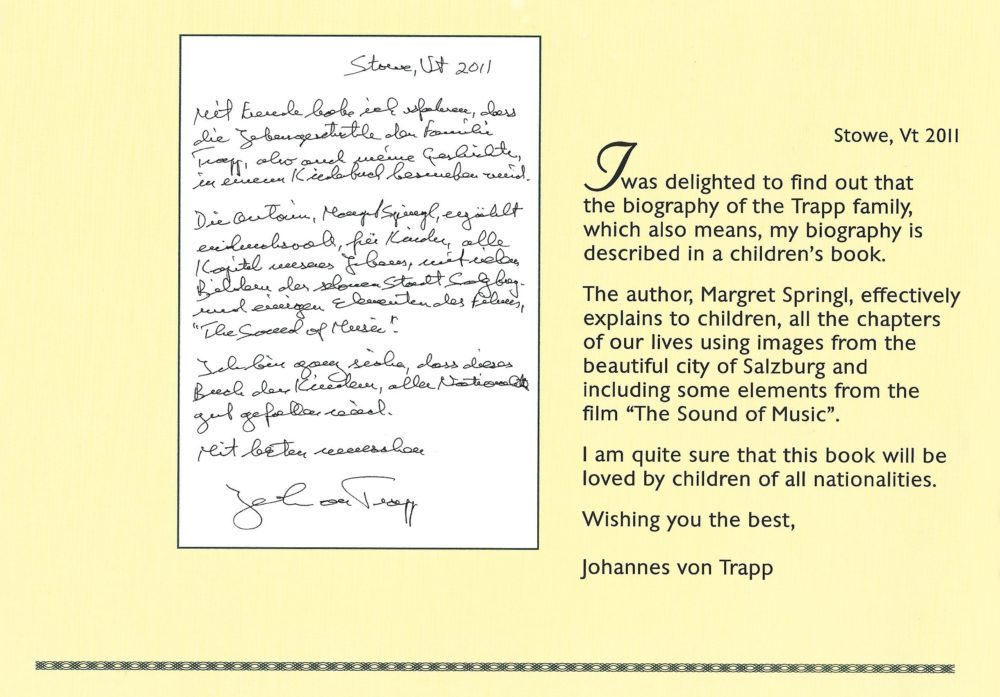 Stowe, Vt 2011
Mit Freude habe ich erfahren, dass
die Lebensgeschichte der Familie
Trapp, also auch meine Geschichte,
in einem Kinderbuch beschrieben wird.
Die Autorin, Margret Springl, erzählt
eindrucksvoll, für Kinder, alle
Kapitel unseres Lebens, mit vielen
Bildern der schönen Stadt Salzburg
und einigen Elementen des Filmes,
"The Sound of Music".
Ich bin ganz sicher, dass dieses
Buch den Kindern, aller
gut gefallen wird.
Mit besten
von Trapp
Stowe, Vt 2011
I was delighted to find out that
the biography of the Trapp family,
which also means, my biography is
described in a children's book.
The author, Margret Springl, effectively
explains to children, all the chapters
of our lives using images from the
beautiful city of Salzburg and
including some elements from the
film “The Sound of Music”.
I am quite sure that this book will be
loved by children of all nationalities.
Wishing you the best,
Johannes von Trapp